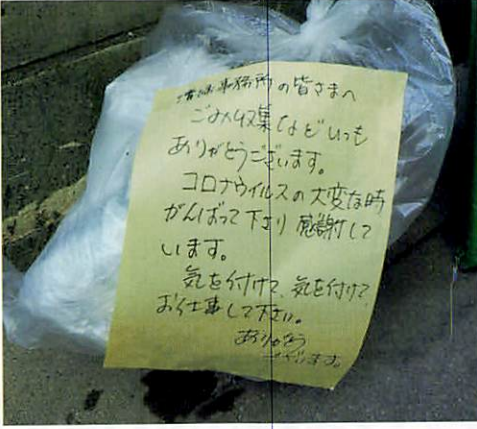 清掃事務所の皆さまへ
ごみ収集などいつも
ありがとうございます。
コロナウイルスの大変な時
がんばって下さり感謝して
います。
気を付けて、気を付けて
お仕事して下さい。
ありがとう
ございます。